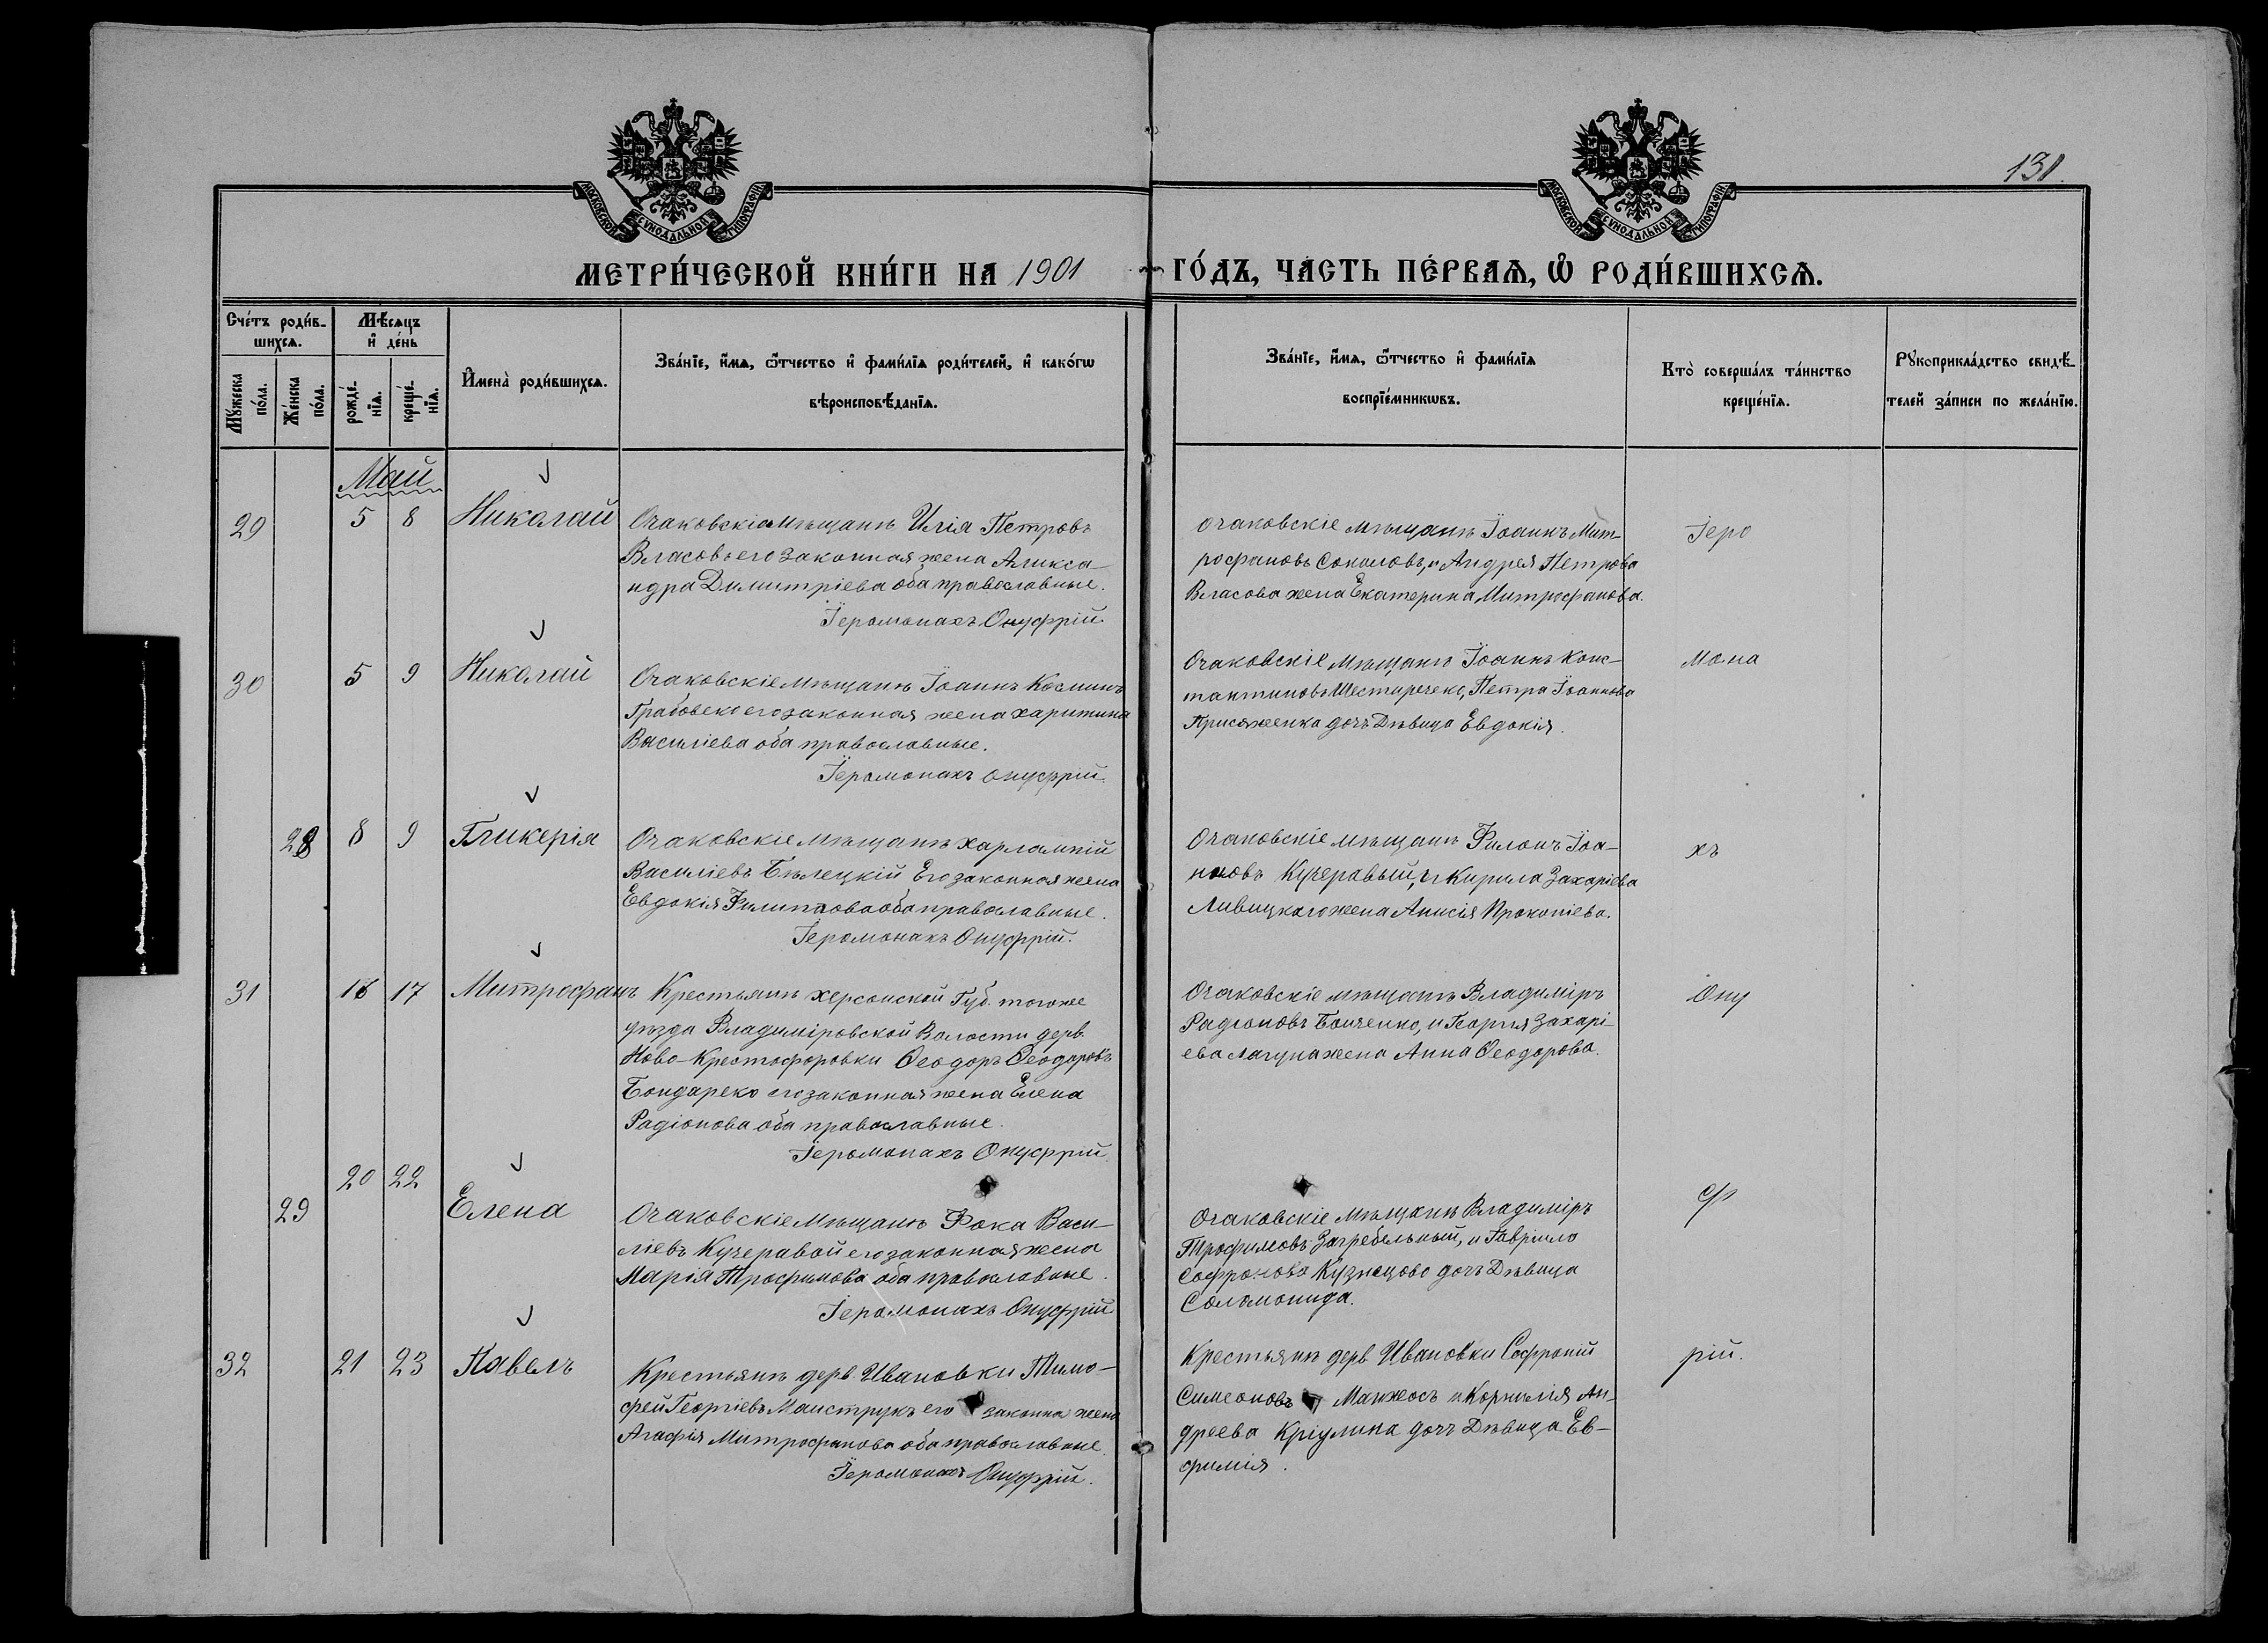 131.
МОСКОВСКОЙ СУНОДАЛЬНОЙ ТИПОГРАФІИ
МОСКОВСКОЙ СУНОДАЛЬНОЙ ТИПОГРАФІИ
МЕТРИ́ЧЕСКОЙ КНИ́ГИ НА 1901 ГО́ДЪ, ЧА́СТЬ ПЕ́РВАѦ, Ѡ РОДИ́ВШИХСѦ.
Сче́тъ роди́в-
шихсѧ.
Мꙋ́жеска
по́ла.
Же́нска
по́ла.
Мѣ́сѧцъ
и де́нь
рожде́-
нїѧ.
креще́-
нїѧ.
Имена̀ роди́вшихсѧ.
Зва́нїе, и́мѧ, ѻ́тчество и фами́лїѧ роди́телей, и како́гѡ
вѣроисповѣ́данїѧ.
Зва́нїе, и́мѧ, ѻ́тчество и фами́лїѧ
воспрїе́мникѡвъ.
Кто̀ соверша́лъ та́инство
креще́нїѧ.
Рꙋкоприкла́дство свидѣ́-
телей за́писи по жела́нїю.
Май
29 5 8 Николай
Очаковскіе мѣщанъ Илія Петровъ
Власовъ его законная жена Алекса-
ндра Димитріева оба православные.
Іеромонахъ Онуфрій.
очаковскіе мѣщанъ Іоаннъ Мит-
рофановъ Соколовъ, и Андрея Петрова
Власова жена Екатерина Митрофанова.
Іеро
30 5 9 Николай
Очаковскіе мѣщанъ Іоаннъ Косминъ
Грабовеко его законная жена харитина
Василіева оба православные.
Іеромонахъ Онуфрій.
Очаковскіе мѣщанъ Іоаннъ Конс-
тантиновъ Шестиречеко, Петра Іоаннова
Присяженка дочь Дѣвица Евдокія.
Мона
28 8 9 Гликерія
Очаковскіе мѣщанъ харлампій
Василіевъ Бѣлецкій Его законная жена
Евдокія Филиппова оба православные.
Іеромонахъ Онуфрій.
Очаковскіе мѣщанъ Филонъ Іоа-
нновъ Кучеравый, и Кирила Захаріева
Ливицкаго жена Анисія Прокопіева.
хъ
31 16 17 Митрофанъ
Крестьянъ херсонской Губ. тогоже
уѣзда Владиміровской Волости дерв.
Ново-Крестофоровки Ѳеодоръ Ѳеодоровъ
Бондареко его законная жена Елена
Радіонова оба православные.
Іеромонахъ Онуфрій.
Очаковскіе мѣщанъ Владиміръ
Радіоновъ Бонченко, и Георгія Захарі-
ева Лагуна жена Анна Ѳеодорова.
Ону
29 20 22 Елена
Очаковскіе Мѣщанъ Фока Васи-
ліевъ Кучеравой его законная жена
Марія Трофимова оба православные.
Іеромонахъ Онуфрій.
Очаковскіе мѣщанъ Владиміръ
Трофимовъ Загребельный, и Гавріила
Софронова Кузнецова дочь Дѣвица
Соломонида.
ф
32 21 23 Павелъ
Крестьянъ дерв. Ивановки Тимо-
фей Георгіевъ Маиструкъ его законна жена
Агафія Митрофанова оба православные.
Іеромонахъ Онуфрій.
Крестьянъ дерв Ивановки Софроній
Симеоновъ Манжосъ и Корнилія Ан-
дреева Кріулина дочь Дѣвица Ев-
фимія.
рій.